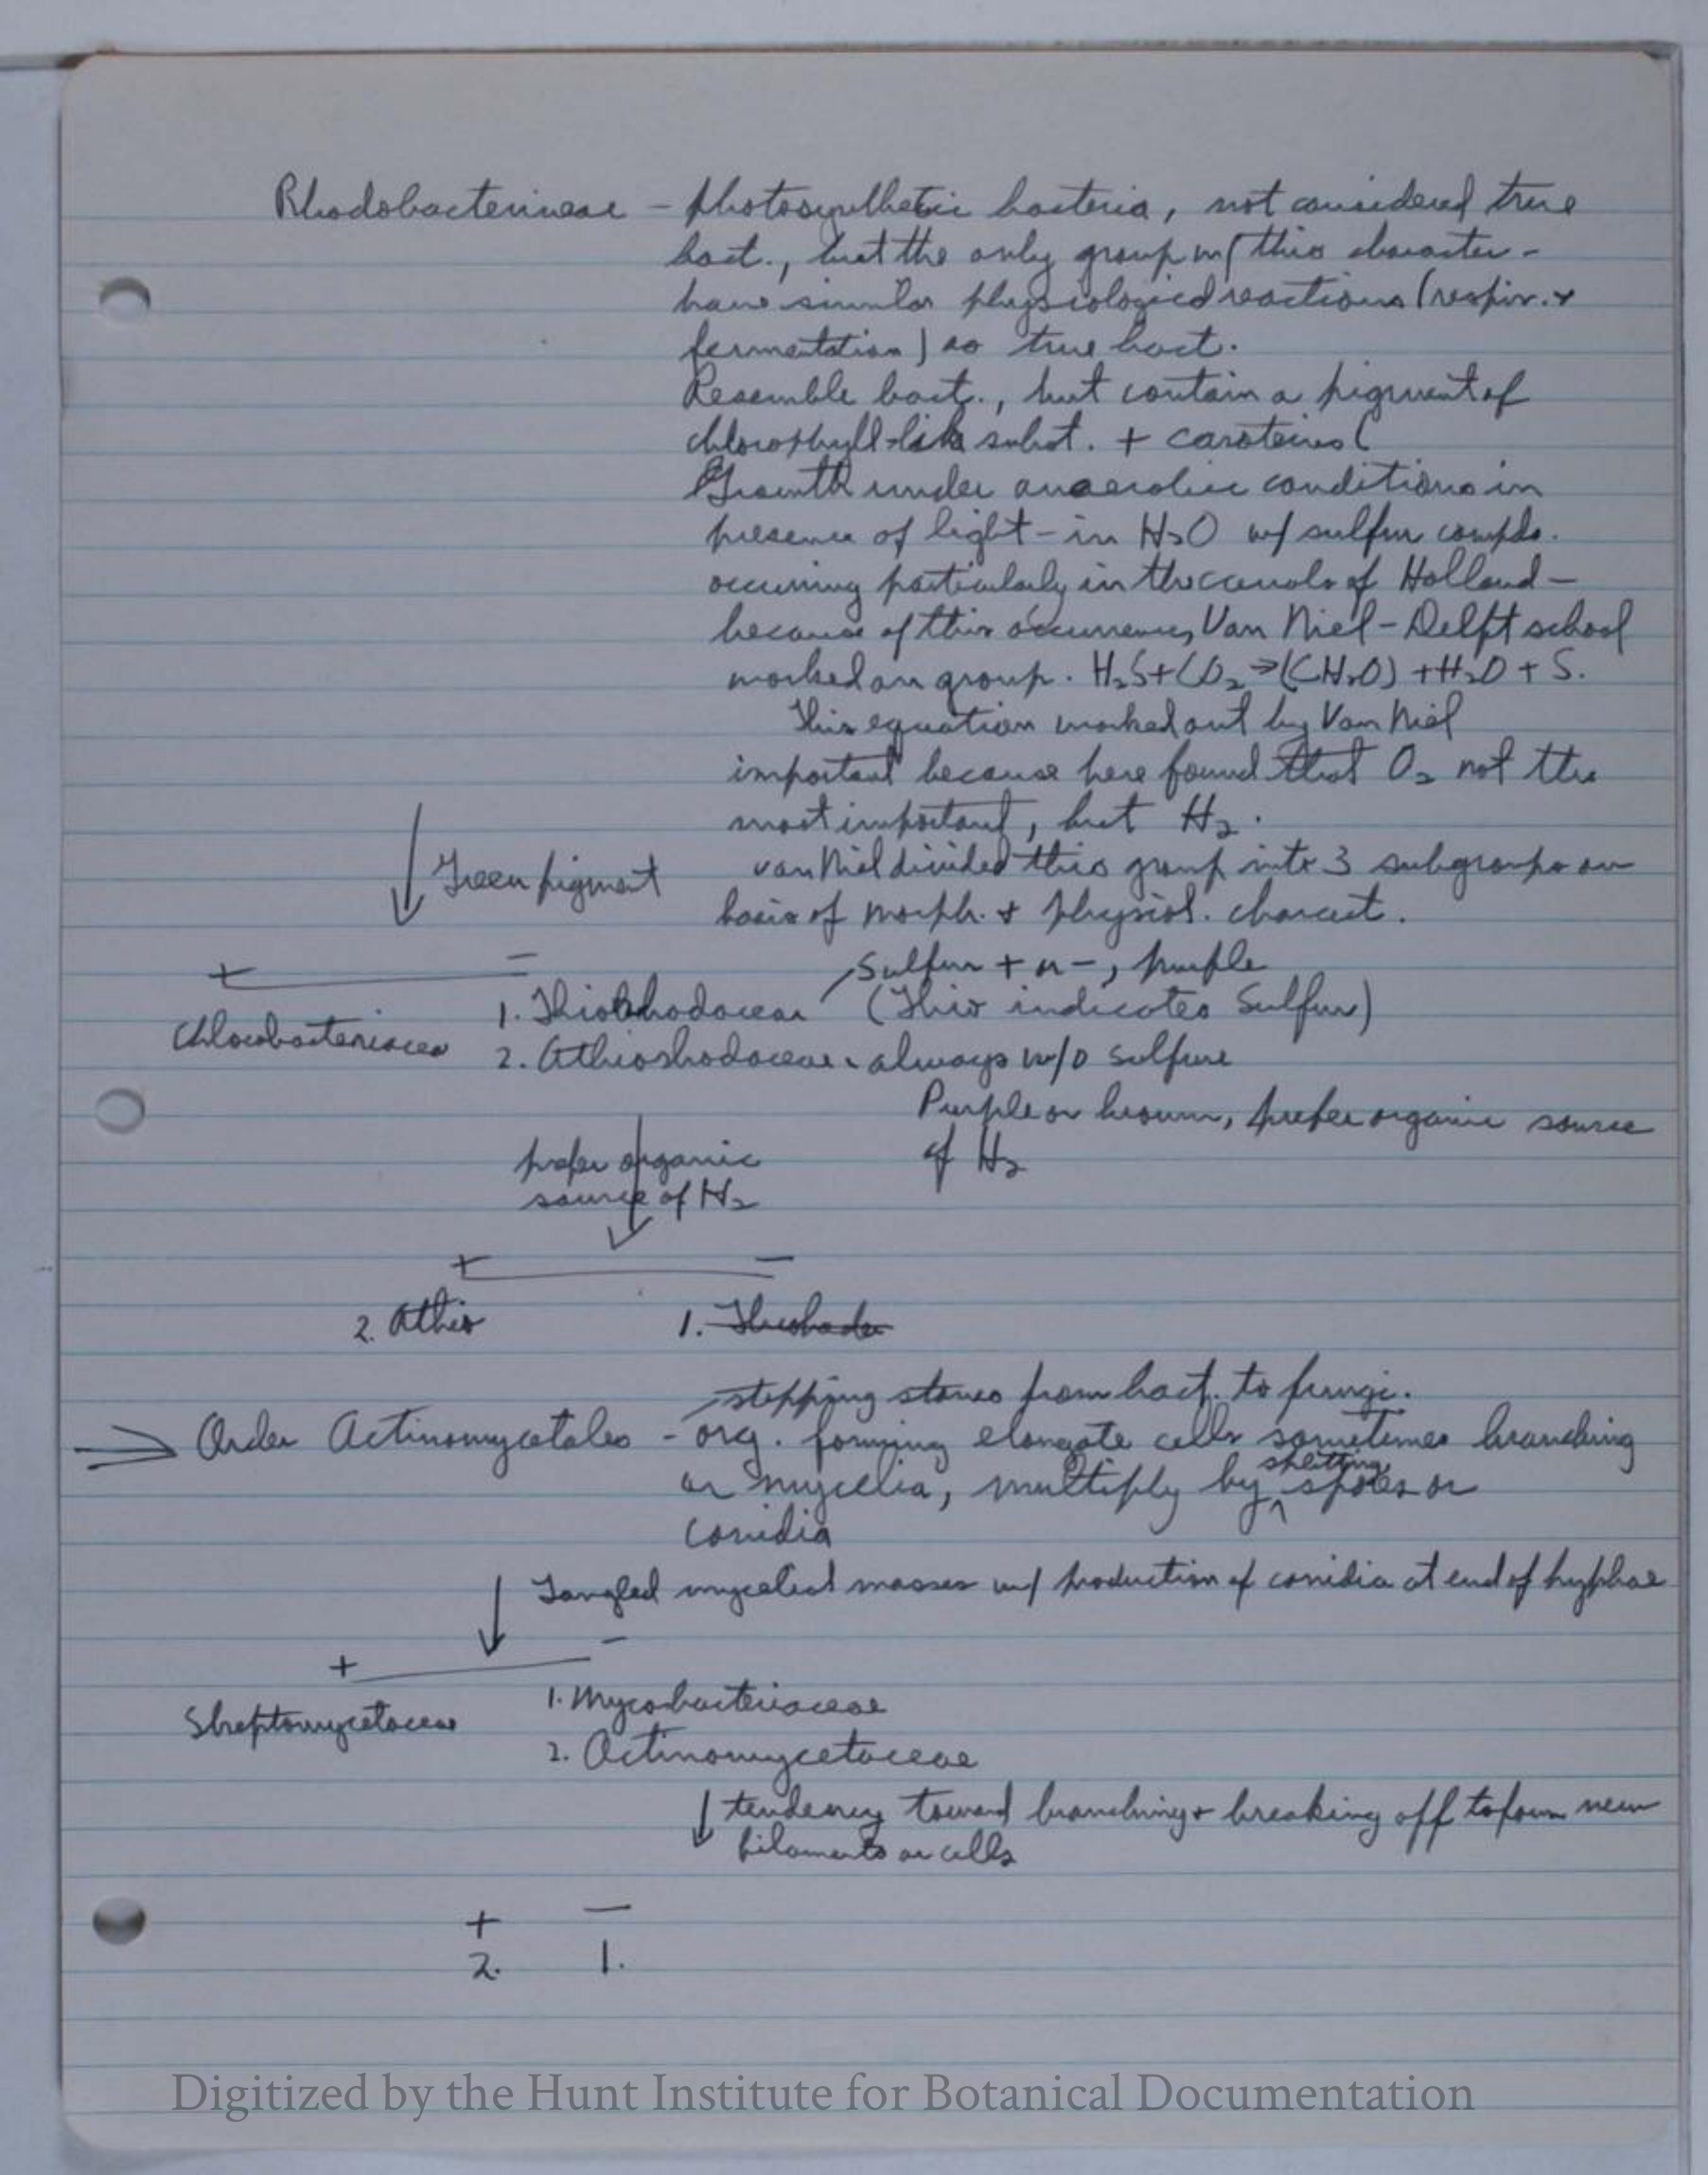 Rhodobacterineae - photosynthetic bacteria, not considered true
bact., but the only group w/ this character -
have similar physiological reactions (respir. +
fermentation) as true bact.
Resemble bact., but contain a pigment of
chlorophyll-like subst. + caroteins (
Growth under anaerobic conditions in
presence of light - in H2O w/ sulfur compds.
occuring particularly in the canals of Holland -
because of this occurrence, Van Niel - Delft school
worked on group. H2S + CO2 → (CH2O) + H2O + S.
This equation worked out by Van Niel
important because here found that O2 not the
most important, but H2.
Green pigment
van Niel divided this group into 3 subgroups on
basis of morph. + physiol. charact.
+ -
Sulfur + or -, purple
1. Thiorhodaceae (Thio indicates Sulfur)
Chlorobacteriaceae
2. Athiorhodaceae - always w/o sulfure
Purple or brown, prefer organic source
of H2
prefer organic
source of H2
+ -
2. Athio 1. Thiorhodo
stepping stones from bact. to fungi.
⇒ Order Actinomycetales - org. forming elongate cells sometimes branching
or mycelia, multiply by splitting, spores or
conidia
Tangled mycelial masses w/ production of conidia at end of hyphae
+ -
Streptomycetaceae
1. Mycobacteriaceae
2. Actinomycetaceae
tendency toward branching + breaking off to form new
filaments or cells
+ -
2. 1.
Digitized by the Hunt Institute for Botanical Documentation